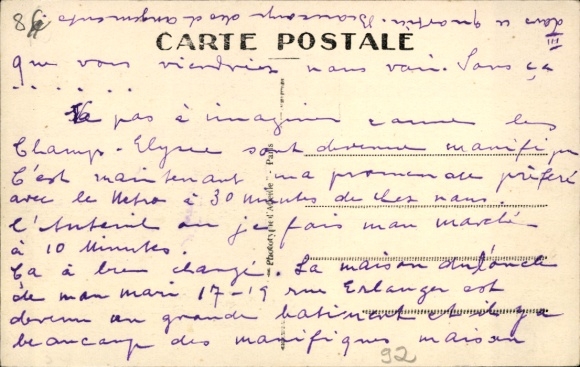 dans ce quartier. Beaucoup des changements
8
III
CARTE POSTALE
que vous viendriez nous voir. Sans ça
. . . . . .
pas à imaginer comme les
Champs-Elysée sont devenue manifi
C'est maintenant ma promenade préféré
avec le Metro à 30 minutes de chez nous.
l'Auteuil ou je fais mon marché
à 10 Minutes.
Ca à bien changé. La maison de l'oncle
de mon mari 17-19 rue Erlanger est
devenu un grande batiment et il y a
beaucoup des manifiques maison
92
Phototypie d'Art - Paris